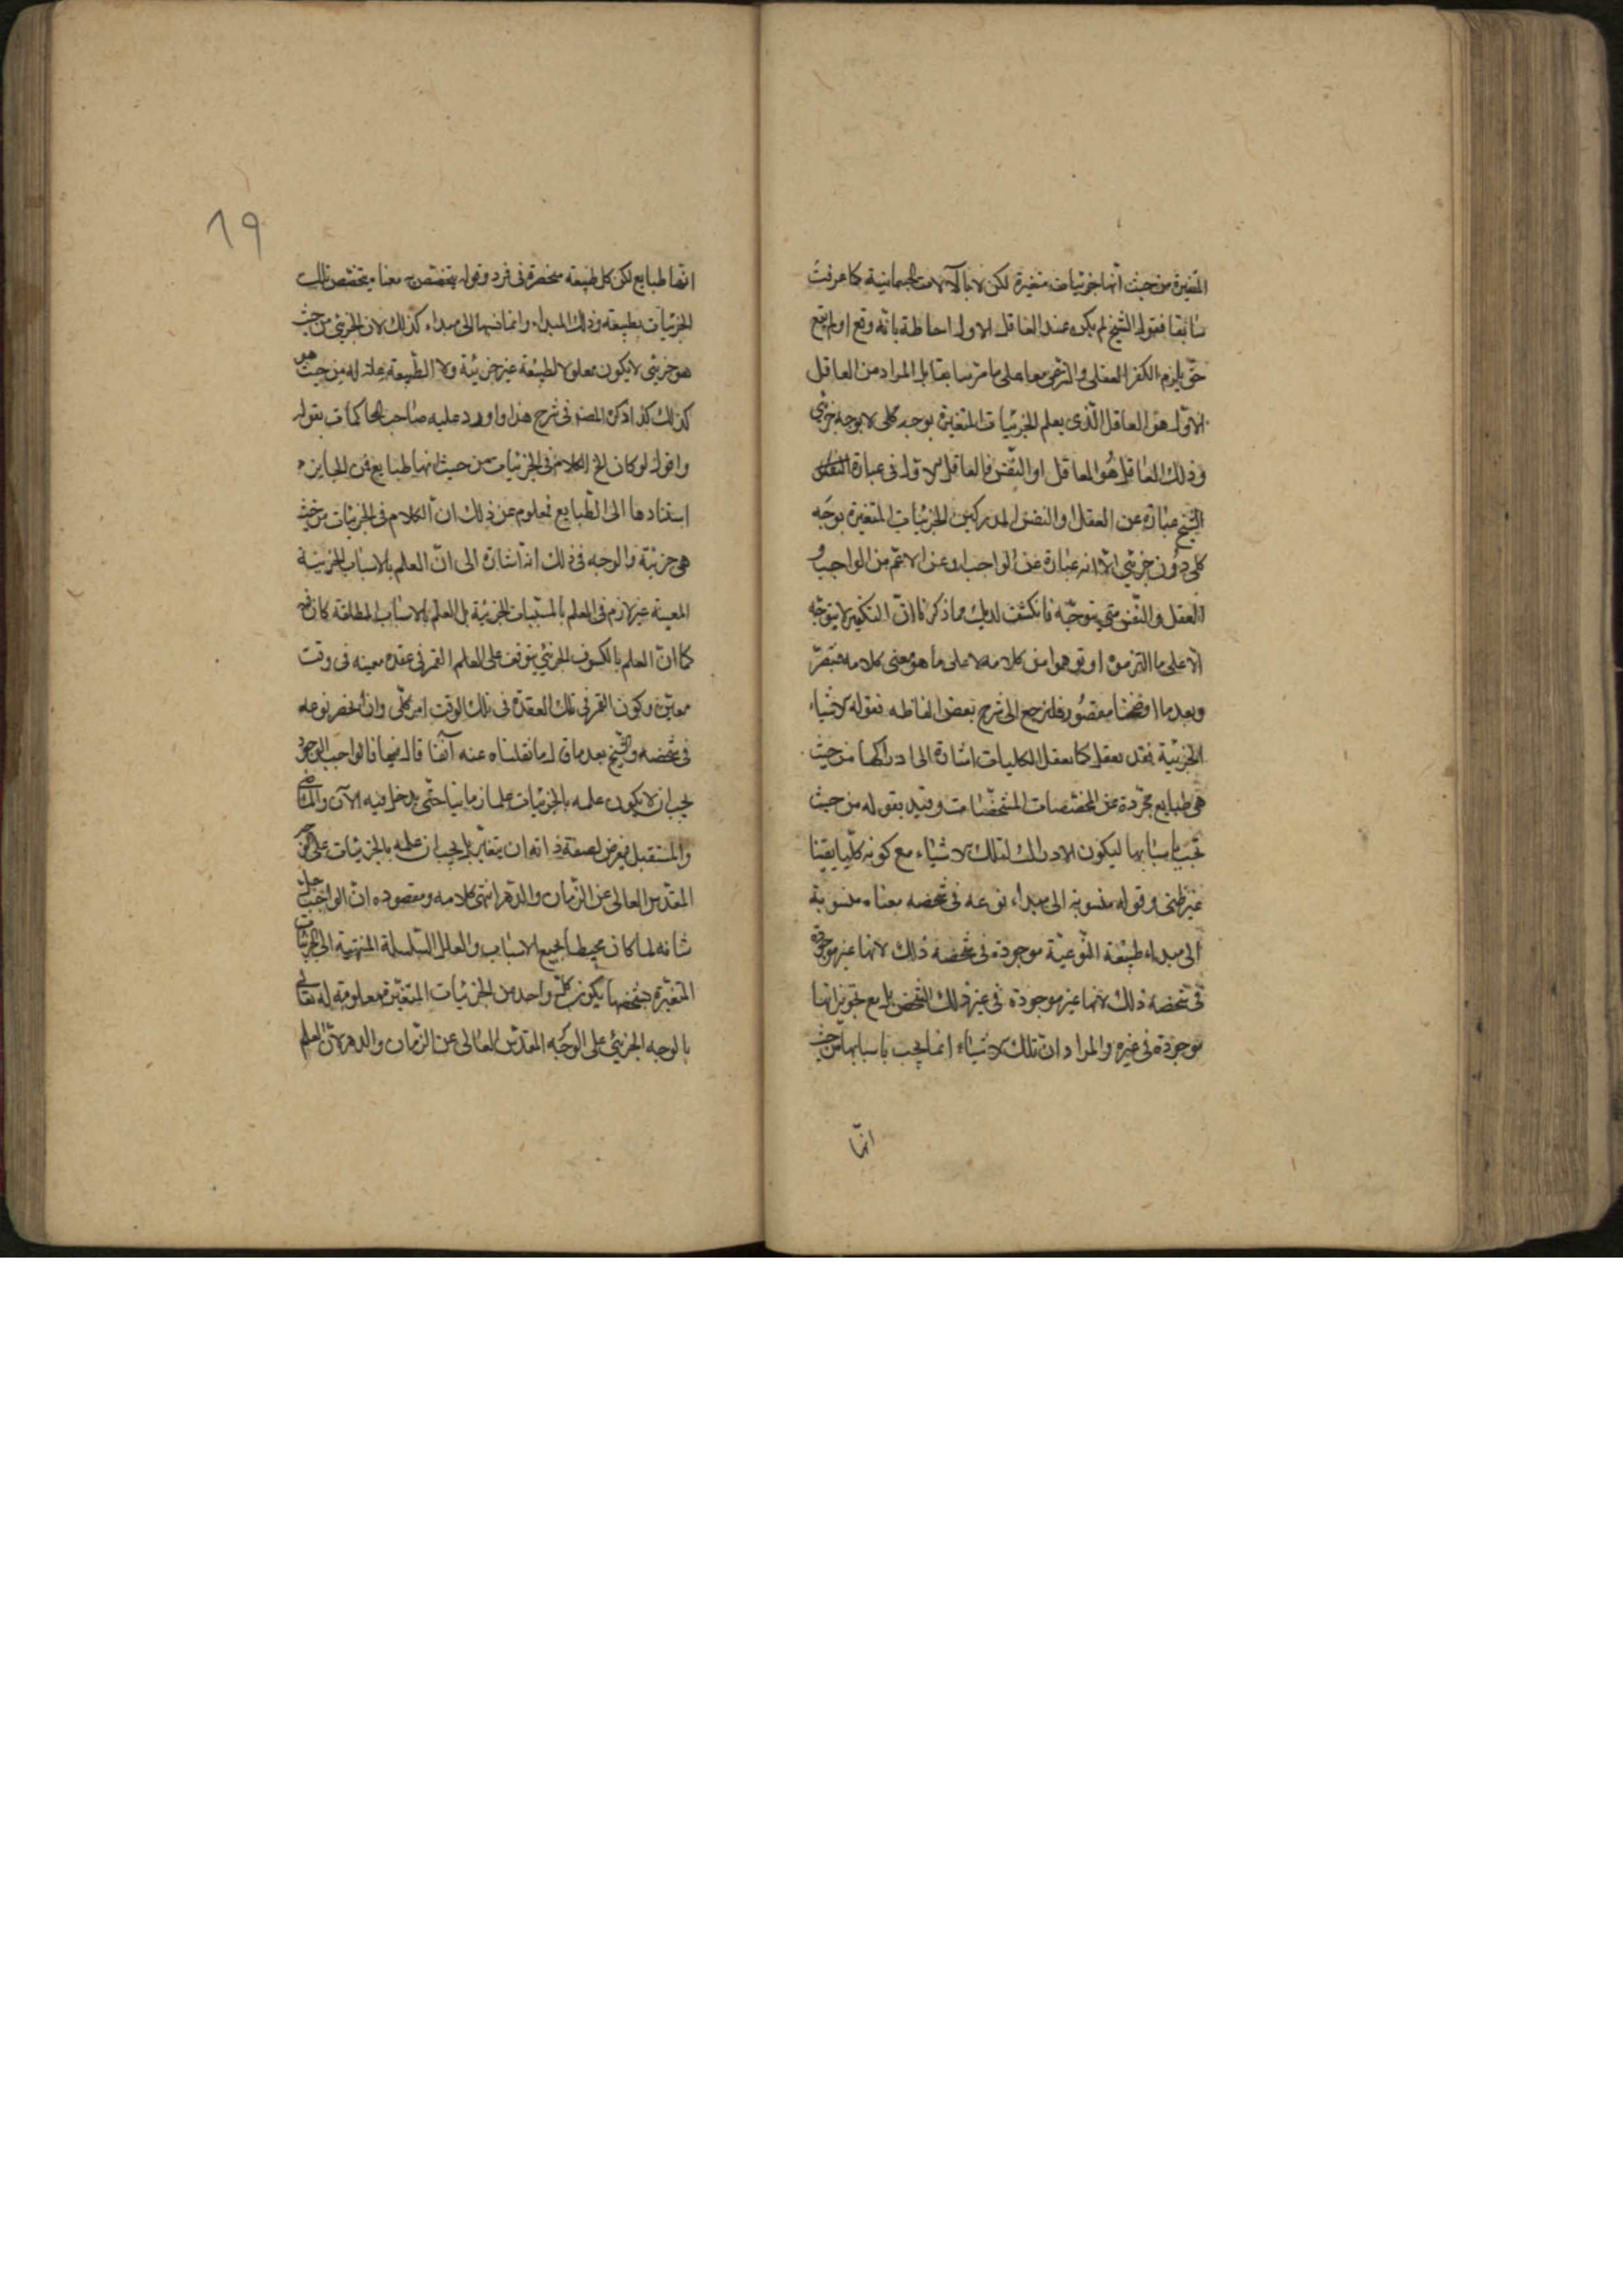 المتغيرة من حيث انها جزئيات متغيرة لكن لا بالآلات الجسمانية كما عرفت
سابقا فقول الشيخ لم يكن عند العاقل الاول احاطة بانه وقع او لم يقع
حتى يلزم الكفر العقلي والشرعي معا على ما مر سابقا بل المراد من العاقل
الاول هو العاقل الذى يعلم الجزئيات المتغيرة بوجه كلى لا بوجه جزئي
وذلك العاقل هو العاقل او النفس فالعاقل الاول في عبارة
الشيخ عبارة عن العقل او النفس المدركين للجزئيات المتغيرة بوجه
كلى دون جزئي لا انه عبارة عن الواجب او عن الاعم من الواجب و
العقل والنفس متى يتوجه فانكشف لديك مما ذكرنا ان التكفير لا يتوجه
الا على ما التزموه او توهموا من كلامه لا على ما هو معنى كلامه فتبصر
وبعد ما اوضحنا مقصوده فلنرجع الى شرح بعض الفاظه فقوله الاشياء
الجزئية فقد تعقل كما تعقل الكليات اشارة الى ادراكها من حيث
هى طبايع مجردة عن المخصصات المشخصات وقيد بقوله من حيث
تجب باسبابها ليكون الادراك لتلك الاشياء مع كونه كليا يقينا
غير ظنى وقوله منسوبة الى مبداء نوعه فى شخصه معناه منسوبة
الى مبداء طبيعة النوعية موجودة فى شخصه ذلك لانها غير موجودة
فى شخصه ذلك لانها غير موجودة فى غير ذلك الشخص بل مع تجويز انها
موجودة فى غيره والمراد ان تلك الاشياء انما يجب باسبابها من حيث
انها
19
انها طبايع لكن كل طبيعة منحصرة فى فرد وقوله يتخصص به معناه يتخصص تلك
الجزئيات بطبيعة وذلك المبداء وانما نسبها الى مبداء كذلك لان الجزئى من حيث
هو جزئى لا يكون معلولا لطبيعة غير جزئية ولا الطبيعة علة له من حيث هو
كذلك كذا ذكره المصنف فى شرح هذا واورد عليه صاحب المحاكمات بقوله
واقول لو كان الخ الكلام فى الجزئيات من حيث انها طبايع فمن الجايزه
استنادها الى الطبايع فمعلوم عن ذلك ان الكلام فى الجزئيات من حيث
هى جزئية والوجه فى ذلك انه اشارة الى ان العلم بالاسباب الجزئية
المعينة غير لازم فى العلم بالمسببات الجزئية بل العلم بالاسباب المطلقة كان فيه
كما ان العلم بالكسوف الجزئى يتوقف على العلم القمر فى عقدة معينه فى وقت
معين وكون القمر فى تلك العقدة فى ذلك الوقت امر كلى وان انحصر نوعه
فى شخصه والشيخ بعد ما قال ما نقلناه عنه آنفا قال فيها فالواجب الوجود
يجب ان لا يكون علمه بالجزئيات علما زمانيا حتى يدخل فيه الآن والماضى
والمستقبل فيعرض لصفة ذاته ان يتغير بل يجب ان علمه بالجزئيات على الوجه
المقدس العالى عن الزمان والدهر انتهى كلامه ومقصوده ان الواجب جل
شانه لما كان محيطا بجميع الاسباب والعلل السلسلة المنتهية الى الجزئيات
المتغيرة بشخصها يكون كل واحد من الجزئيات المتغيرة معلومة له تعالى
بالوجه الجزئى على الوجه المقدس العالى عن الزمان والدهر لان العلم